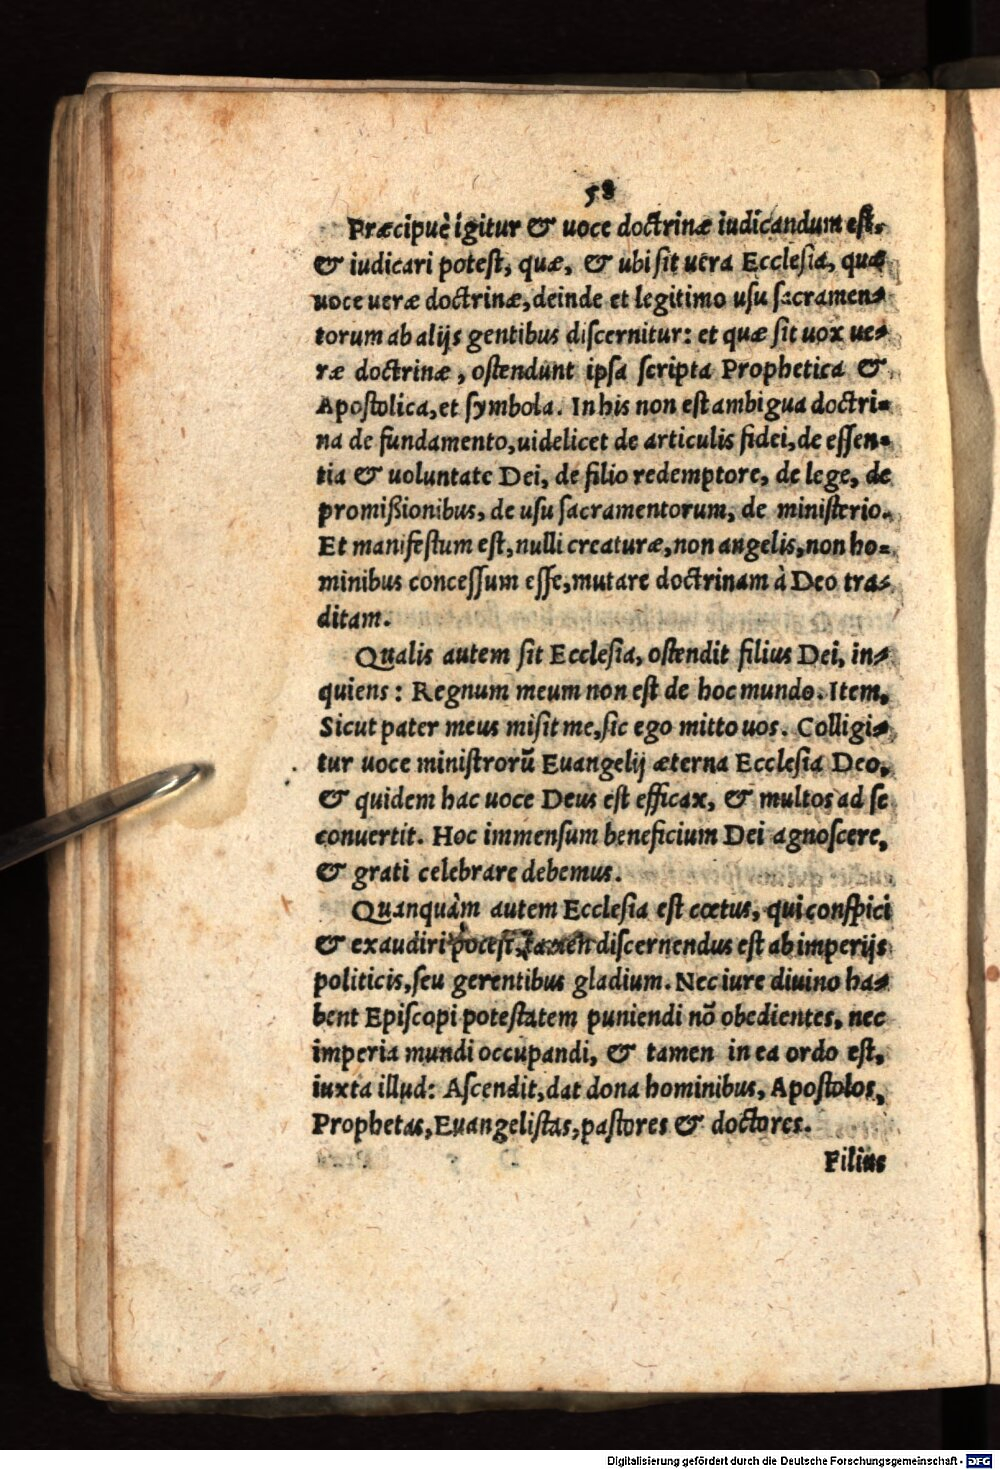 58
Præcipuè igitur & uoce doctrinæ iudicandum est,
& iudicari potest, quæ, & ubi sit uera Ecclesia, quæ
uoce ueræ doctrinæ, deinde et legitimo usu sacramen-
torum ab alijs gentibus discernitur: et quæ sit uox ue-
ræ doctrinæ, ostendunt ipsa scripta Prophetica &
Apostolica, et symbola. In his non est ambigua doctri-
na de fundamento, uidelicet de articulis fidei, de essen-
tia & uoluntate Dei, de filio redemptore, de lege, de
promißionibus, de usu sacramentorum, de ministerio.
Et manifestum est, nulli creaturæ, non angelis, non ho-
minibus concessum esse, mutare doctrinam à Deo tra-
ditam.
Qualis autem sit Ecclesia, ostendit filius Dei, in-
quiens: Regnum meum non est de hoc mundo. Item,
Sicut pater meus misit me, sic ego mitto uos. Colligi-
tur uoce ministrorũ Euangelij æterna Ecclesia Deo,
& quidem hac uoce Deus est efficax, & multos ad se
conuertit. Hoc immensum beneficium Dei agnoscere,
& grati celebrare debemus.
Quanquàm autem Ecclesia est cœtus, qui conspici
& exaudiri potest, tamen discernendus est ab imperijs
politicis, seu gerentibus gladium. Nec iure diuino ha-
bent Episcopi potestatem puniendi nõ obedientes, nec
imperia mundi occupandi, & tamen in ea ordo est,
iuxta illud: Ascendit, dat dona hominibus, Apostolos,
Prophetas, Euangelistas, pastores & doctores.
Filius
Digitalisierung gefördert durch die Deutsche Forschungsgemeinschaft - DFG